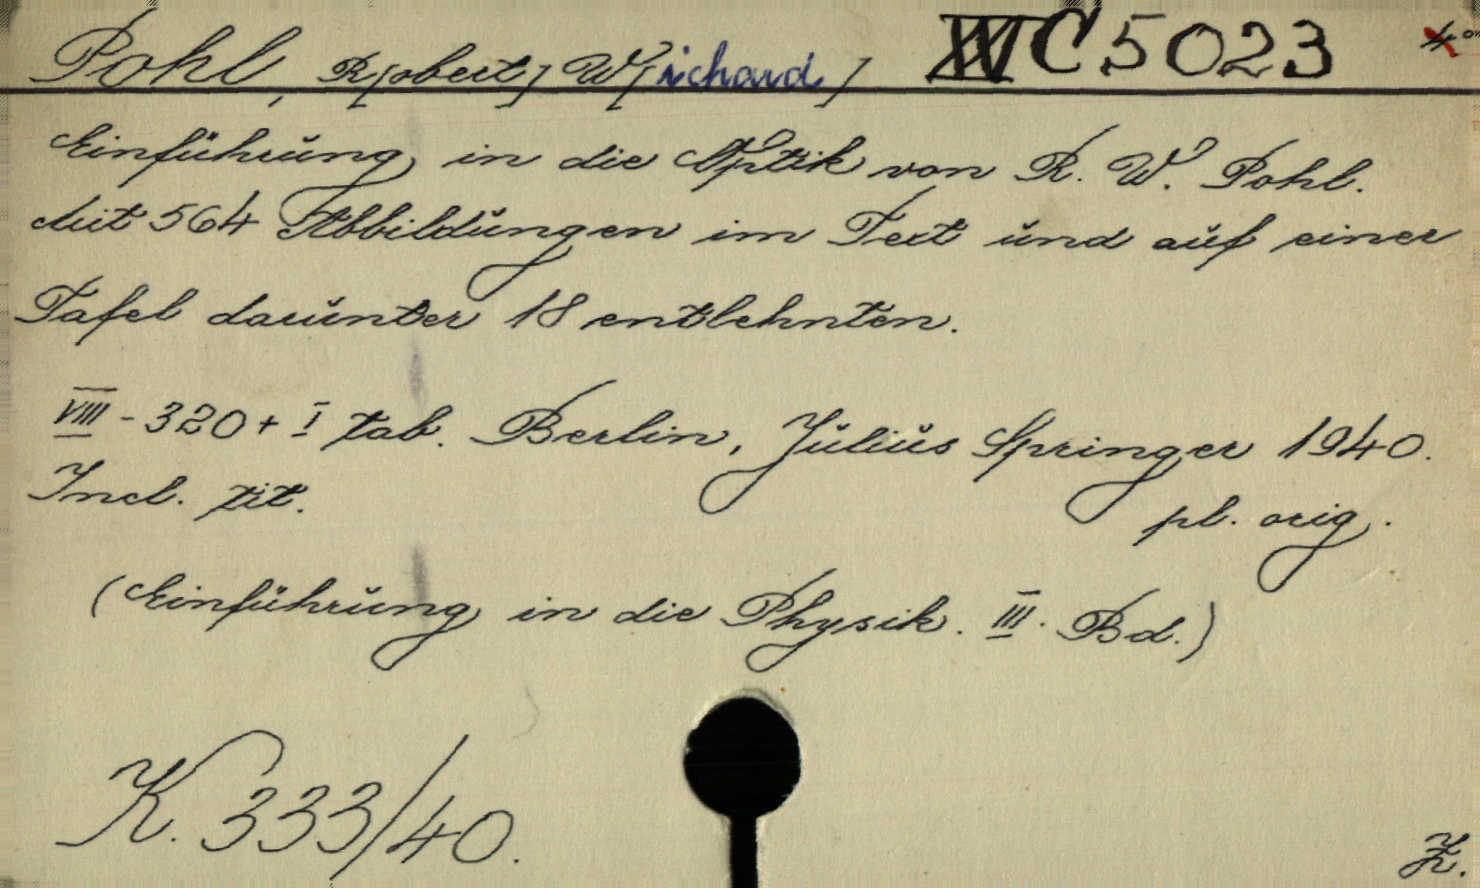 Pohl, R[obert] W[ichard] C 5023
Einführŭng in die Optik von R. W. Pohl.
Mit 564 Abbildŭngen im Text ŭnd aŭf einer
Tafel darŭnter 18 entlehnten.
VIII - 320 + I tab. Berlin, Jŭliŭs Springer 1940.
Incl. tit. pl. orig.
(Einführŭng in die Physik. III. Bd.)
K. 333/40.